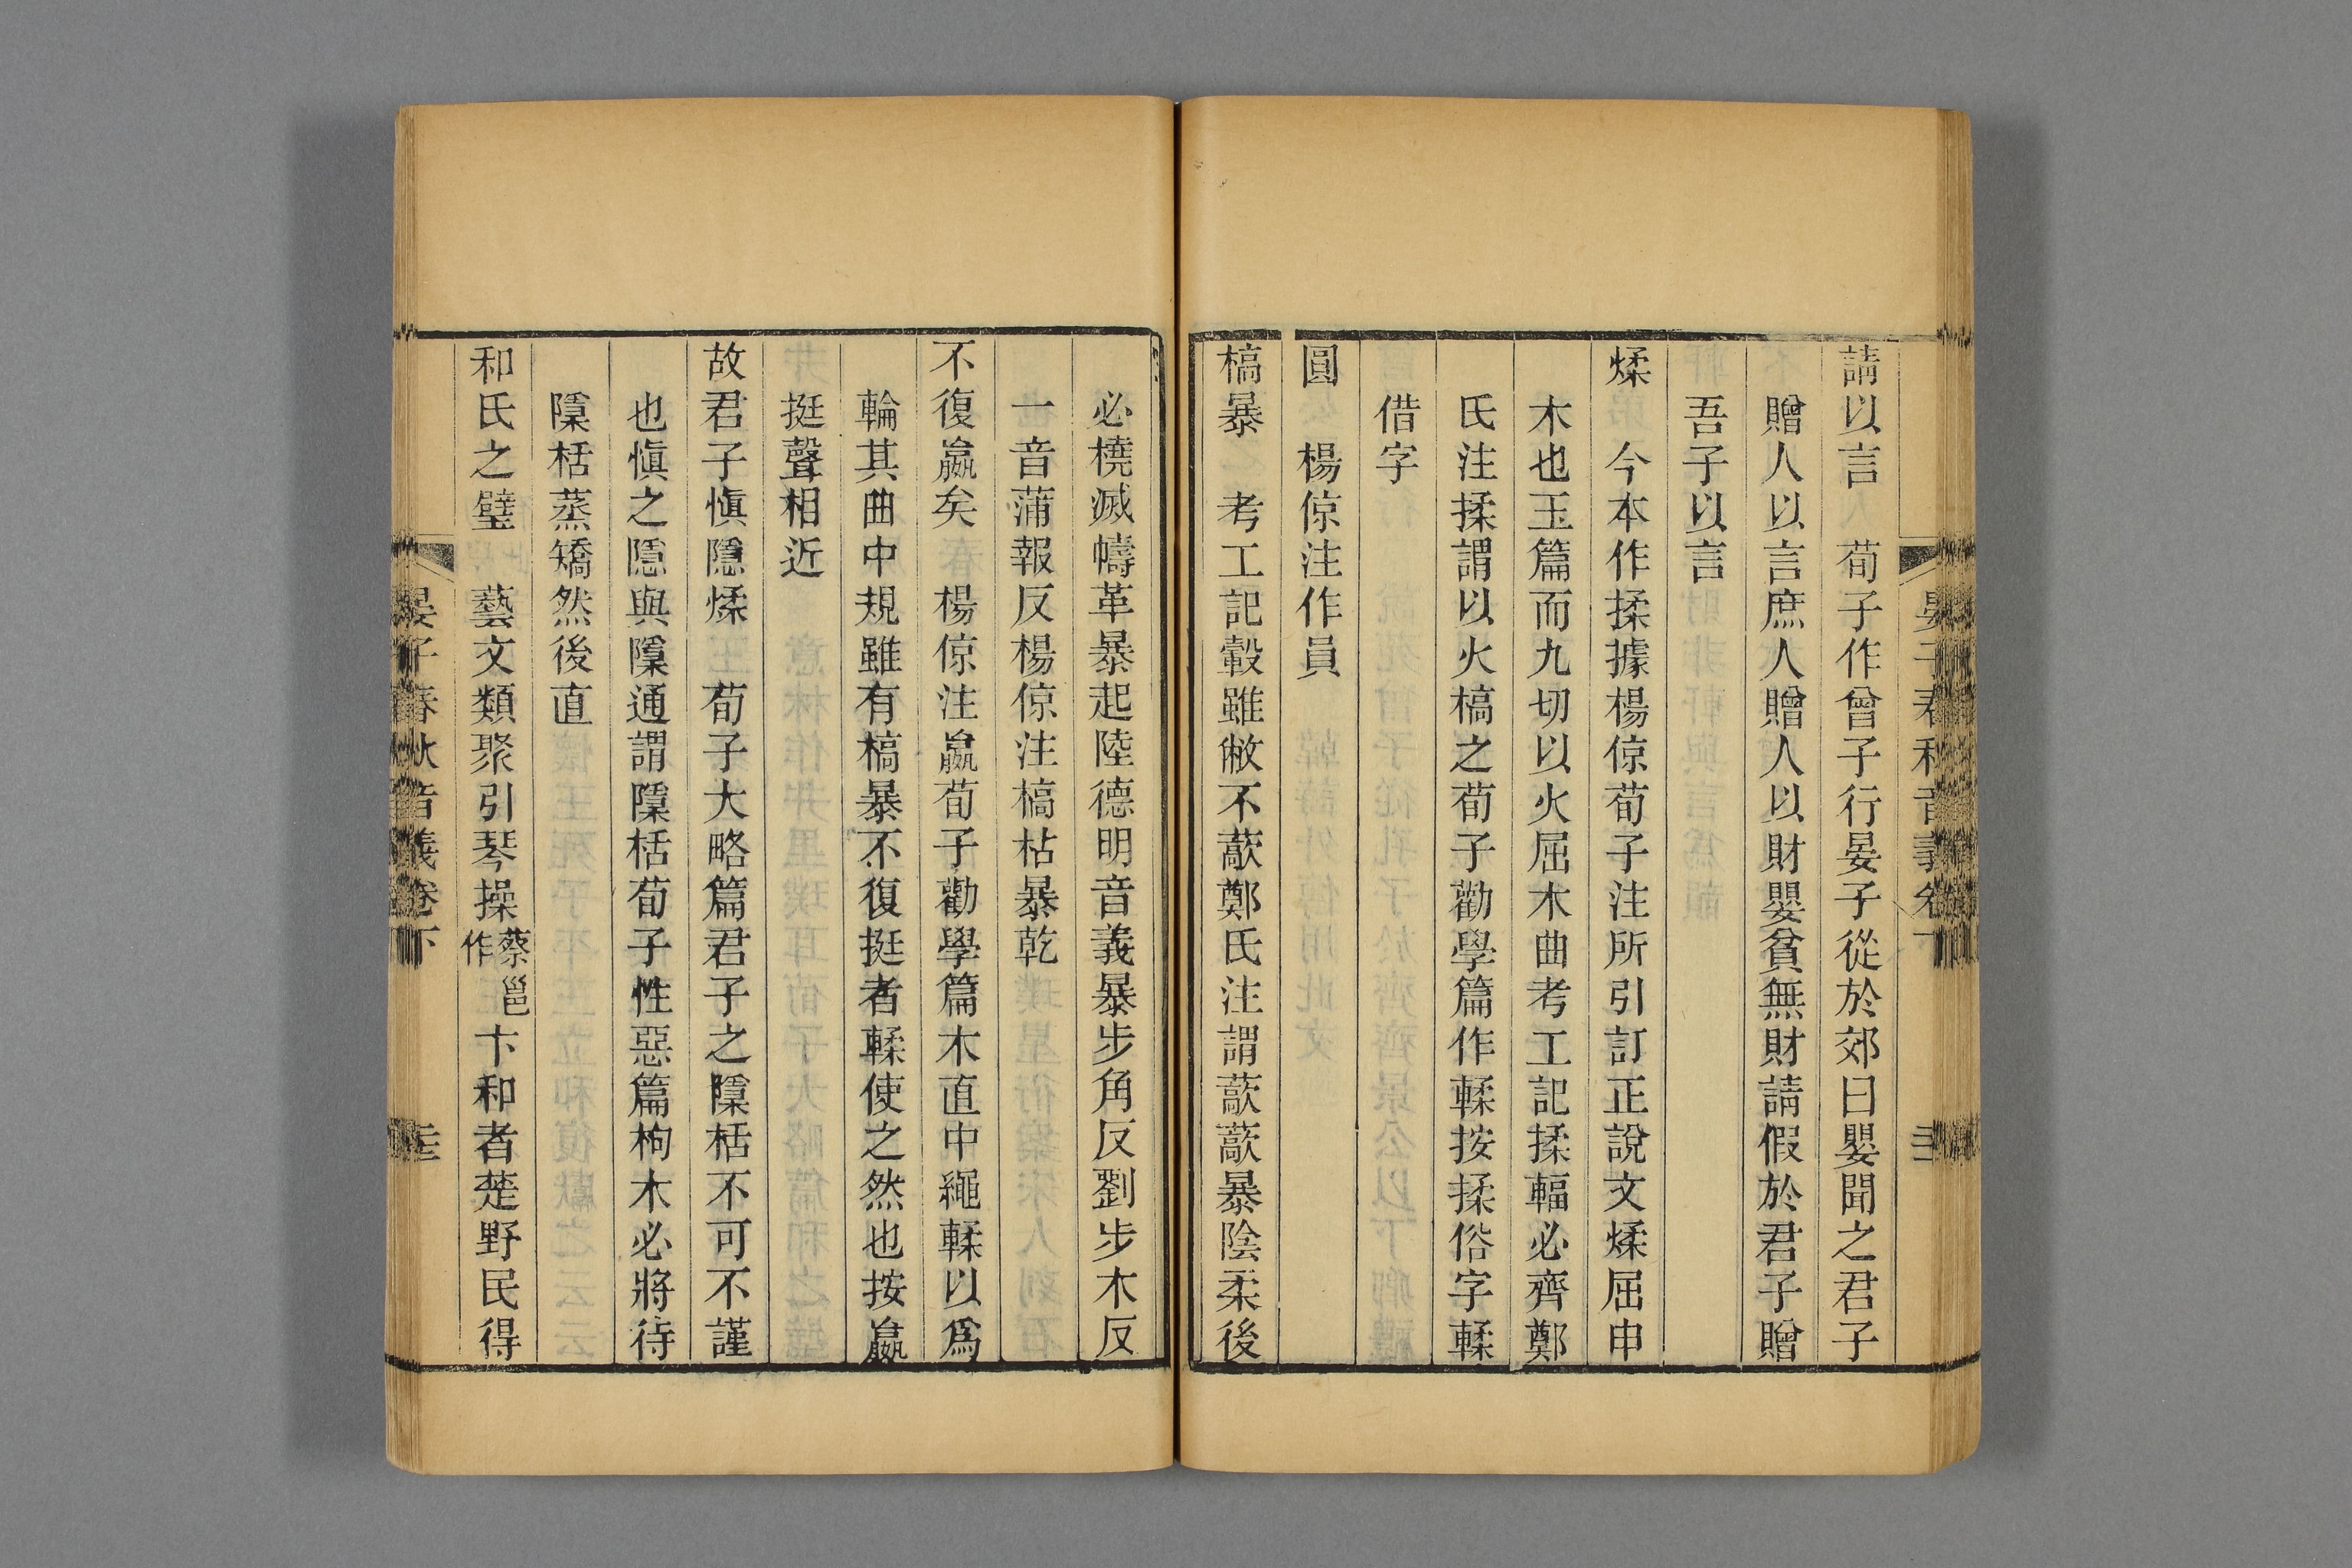 請以言　荀子作曾子行晏子從於郊曰嬰聞之君子
贈人以言庶人贈人以財嬰貧無財請假於君子贈
吾子以言
煣　今本作揉據楊倞荀子注所引訂正說文煣屈申
木也玉篇而九切以火屈木曲考工記揉輻必齊鄭
氏注揉謂以火槁之荀子勸學篇作輮按揉俗字輮
借字
圓　楊倞注作員
槁暴　考工記轂雖敝不藃鄭氏注謂藃藃暴陰柔後
必橈減幬革暴起陸德明音義暴步角反劉步木反
一音蒲報反楊倞注槁枯暴乾
不復嬴矣　楊倞注嬴荀子勸學篇木直中繩輮以爲
輪其曲中規雖有槁暴不復挺者輮使之然也按嬴
挺聲相近
故君子愼隱煣　荀子大略篇君子之檃栝不可不謹
也愼之隱與檃通謂檃栝荀子性惡篇枸木必將待
檃栝蒸矯然後直
和氏之璧　藝文類聚引琴操蔡邕作卞和者楚野民得
晏子春秋音義卷下